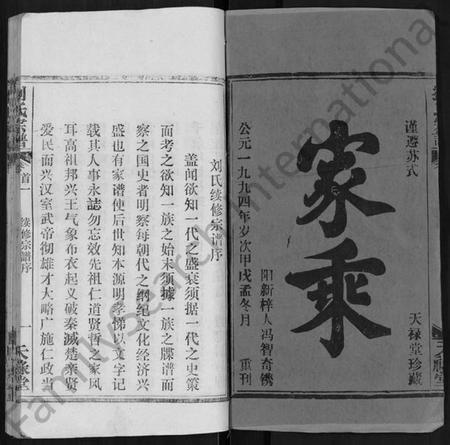 谨遵苏式
家乘
公元一九九四年岁次甲戌孟冬月
阳新梓人冯智奇镌
重刊
天禄堂珍藏
刘氏续修宗谱序
盖闻欲知一代之盛衰须据一代之史策
而考之欲知一族之始末须据一族之牒谱而
察之国史者明察每朝代之纲纪文化经济兴
盛也有家谱使后世知本源明孝悌以文字记
载其人事永誌勿忘效先祖仁道贤哲之家风
耳高祖邦兴王气象布衣起义破秦减楚亲贤
爱民而兴汉室武帝彻雄才大略广施仁政当
刘氏宗谱
首一
续修宗谱序
一
天禄堂
FamilySearch International